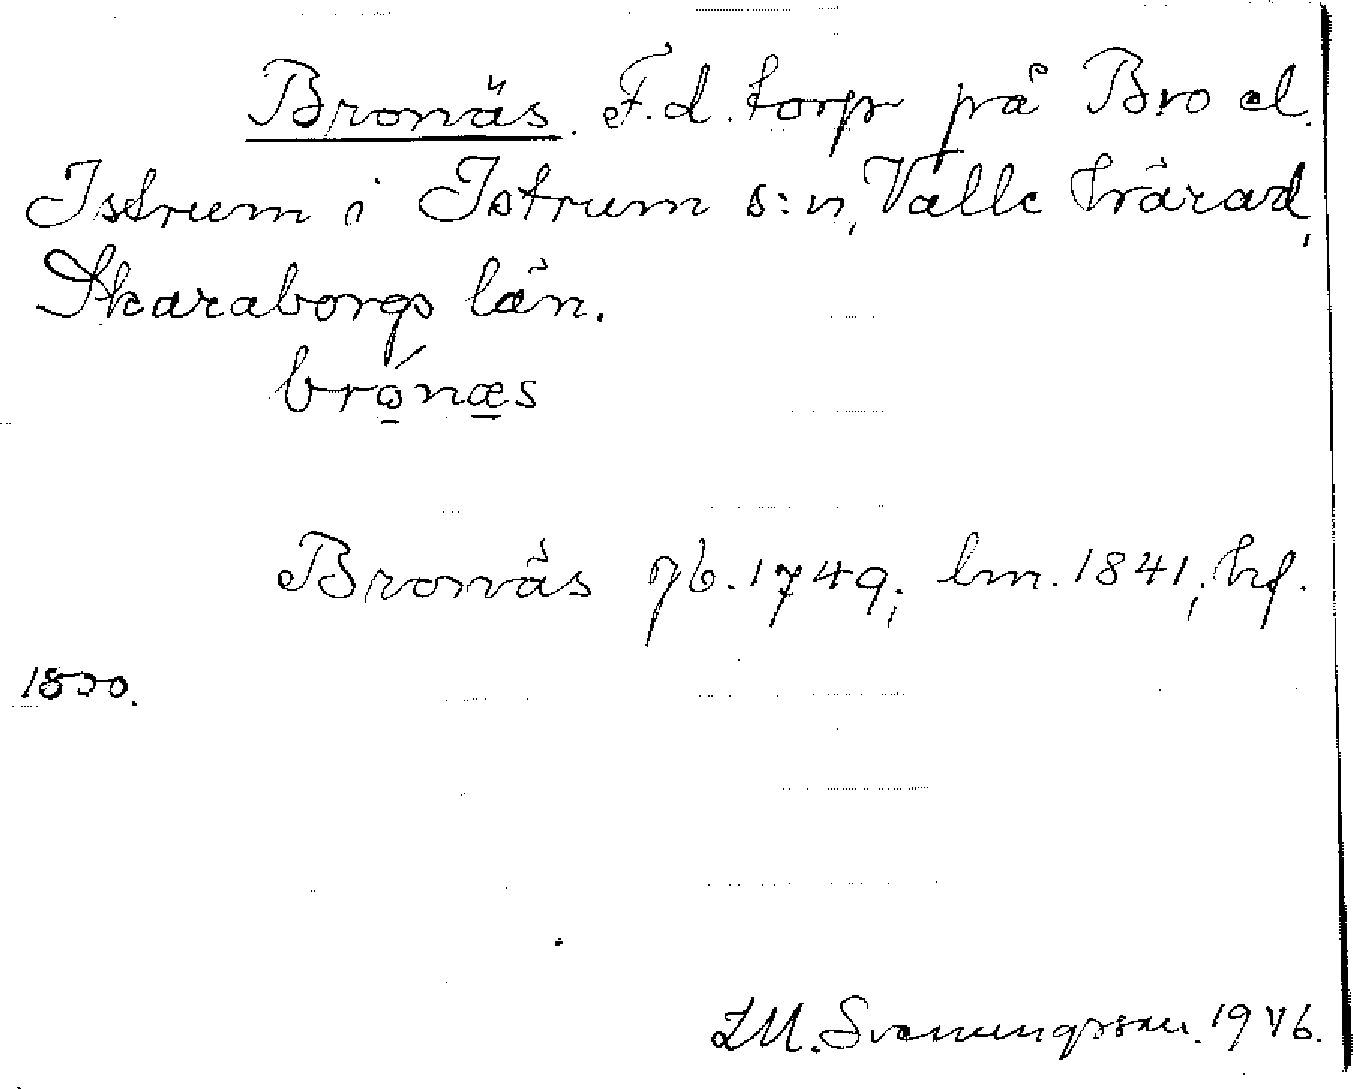 Bronäs. F.d. torp på Bro el.
Istrum i Istrum s:n, Valle härad,
Skaraborgs län.
brónæs
Bronäs jb. 1749; lm. 1841; hf.
1800.
LM. Svenungsson. 1946.